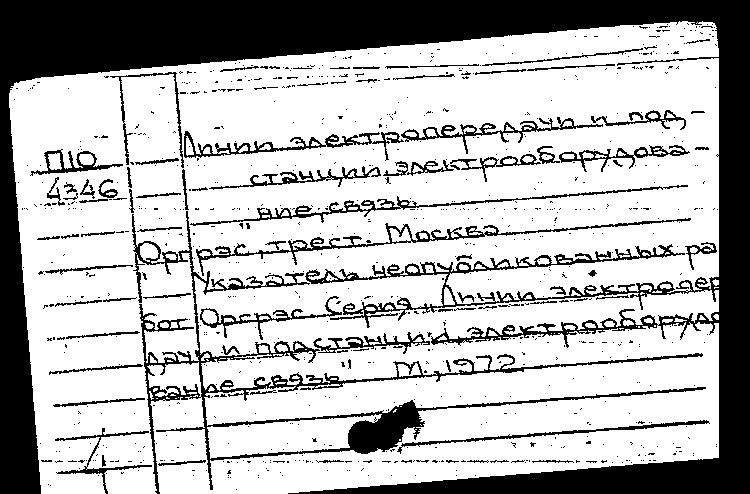 П10
4346
Линии электропередачи и под-
станции, электрооборудова-
ние, связь.
"Оргрэс", трест. Москва
Указатель неопубликованных ра
бот Оргрэс. Серия "Линии электропер
дачи и подстанции, электрооборудо
вание, связь" М., 1972.